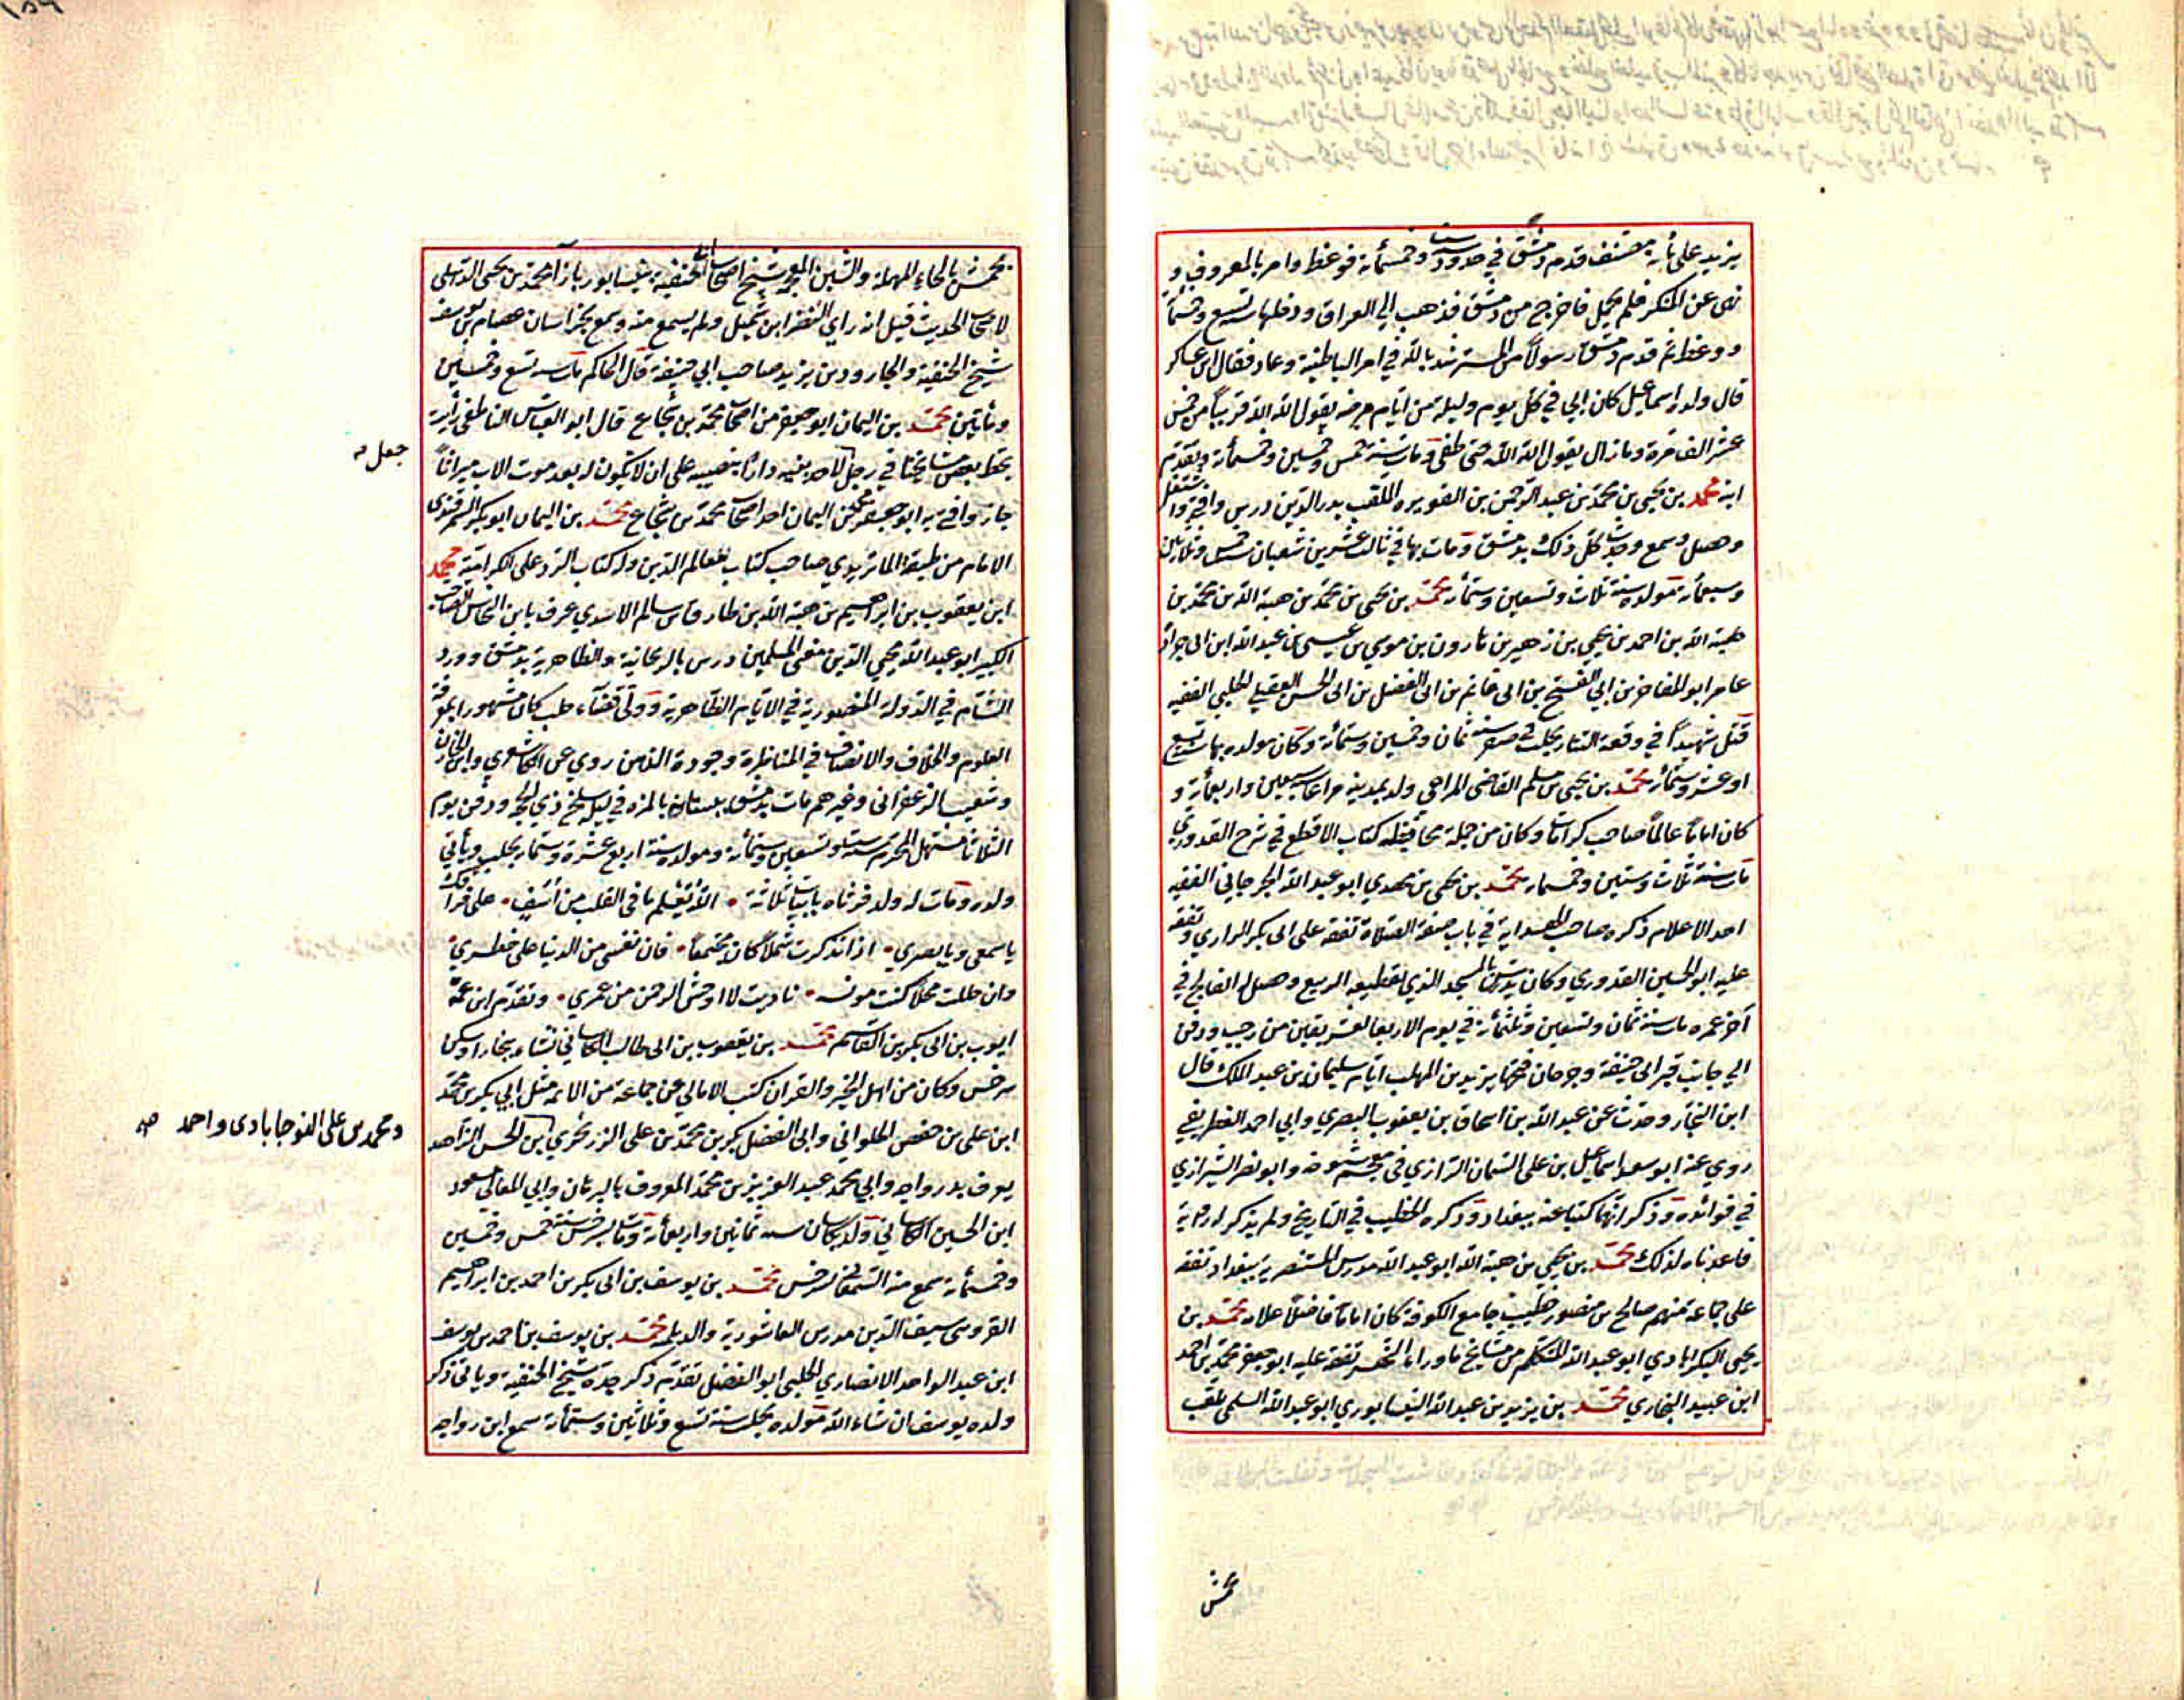 يزيد على مائة مصنف قدم دمشق في حدود ست وخمسمائة فوعظ وامر بالمعروف و
نهى عن المنكر فلم يحمل فاخرج من دمشق فذهب الي العراق ودخلها سنة تسع وخمسمائة
ووعظ ثم قدم دمشق رسولاً من المسترشد بالله في امر الباطنية وعاد فقال ابن عساكر
قال ولده اسماعيل كان ابي في كل يوم وليلة من ايام مرضه يقول الله الله قريباً من خمس
عشر الف مرة وما زال يقول الله الله حتى طفى ومات سنة خمس وخمسين وخمسمائة ويقدم
ابنه محمد بن يحيى بن محمد بن عبد الرحمن بن الفويره الملقب بدر الدين درس وافتى واشتغل
وحصل وسمع وحدث كل ذلك بدمشق ومات بها في ثالث عشرين شعبان سنة خمس وثلاثين
وسبعمائة مولده سنة ثلاث وتسعين وستمائة محمد بن يحيى بن محمد بن هبة الله بن محمد بن
هبة الله بن احمد بن يحيى بن زهير بن هارون بن موسى بن عيسى بن عبد الله ابن ابي جرادة
عامر ابو المفاخر بن ابي الفتح بن ابي غانم بن ابي الفضل بن ابي الحسن العقيلي الحلبي الفقيه
قتل شهيداً في وقعة التتار بحلب في صفر سنة ثمان وخمسين وستمائة وكان مولده بها سنة تسع
او عشر وستمائة محمد بن يحيى بن مسلم القاضي المراغي ولد بمدينة مراغا سنة سبعين واربعمائة و
كان اماماً عالماً صاحب كرامات وكان من جملة محافيظه كتاب الاقطع في شرح القدوري
مات سنة ثلاث وستين وخمسمائة محمد بن يحيى بن مهدي ابو عبد الله الجرجاني الفقيه
احد الاعلام ذكره صاحب الهداية في باب صفة الصلاة تفقه على ابي بكر الرازي وتفقه
عليه ابو الحسين القدوري وكان يدرس بالمسجد الذي بقطيعة الربيع وحصل له الفالج في
آخر عمره مات سنة ثمان وتسعين وثلثمائة في يوم الاربعا لعشر بقين من رجب ودفن
الي جانب قبر ابي حنيفة وجرجان فتحها يزيد بن المهلب ايام سليمان بن عبد الملك قال
ابن النجار وحدث عن عبد الله بن اسحاق بن يعقوب البصري وابي احمد الغطريفي
روي عنه ابو سعد اسماعيل بن علي السمان الرازي في معجم شيوخه وابو نصر الشيرازي
في فوائده وذكر انهما كتبا عنه ببغداد وذكره الخطيب في التاريخ ولم يذكر له رواية
فاعدناه لذلك محمد بن يحيى بن هبة الله ابو عبد الله مدرس المستنصرية ببغداد تفقه
على جماعة منهم صالح بن منصور خطيب جامع الكوفة كان اماماً فاضلاً علامة محمد بن
يحيى البكرابادي ابو عبد الله المتكلم من مشايخ ما وراء النهر تفقه عليه ابو جعفر محمد بن احمد
ابن عبيد البخاري محمد بن يزيد بن عبد الله النيسابوري ابو عبد الله السلمي يلقب
محمش
محمش بالحاء المهملة والشين المعجمة شيخ اصحابنا الحنفية بنيسابور بازآ محمد بن يحيى الذهلي
لاصحاب الحديث قيل انه راي النضر ابن شميل ولم يسمع منه وسمع بخراسان عصام بن يوسف
شيخ الحنفية والجارود بن يزيد صاحب ابي حنيفة قال الحاكم مات سنة تسع وخمسين
ومائتين محمد بن اليمان ابو جعفر من اصحاب محمد بن شجاع قال ابو العباس الناطفي رأيت
بخط بعض مشايخنا في رجل لاحد بنيه دارا بنصيبه على ان لا يكون له بعد موت الاب ميراثاً
جعل
جاز وافتي به ابو جعفر محمد بن اليمان احد اصحاب محمد بن شجاع محمد بن اليمان ابو بكر السمرقندى
الامام من طبقة الماتريدي صاحب كتاب معالم الدين وله كتاب الرد على الكرامية محمد
ابن يعقوب بن ابراهيم بن هبة الله بن طارق بن سالم الاسدي عرف بابن النحاس الصاحب
الكبير ابو عبد الله محيي الدين مفتي المسلمين درس بالريحانية والظاهرية بدمشق وورد
الشام في الدولة المنصورية في الايام الظاهرية وولي قضآء حلب كان مشهورا بمعرفة
العلوم والخلاف والانصاف في المناظرة وجودة الذهن روي عن الكاشغري وابن الخازن
وشعيب الزعفراني وغيرهم مات بدمشق ببستانه بالمزه في ليلة سلخ ذي الحجة ودفن يوم
الثلاثا مستهل المحرم سنة ست وتسعين وستمائة ومولده سنة اربع عشرة وستمائة بحلب ويأتي
ولده ومات له ولد فرثاه بابيات ثلاثة الله يعلم ما في القلب من أسف على فراقك
ياسمعي ويابصري اذا تذكرت شملاً كان مجتمعاً فان نفسي من الدنيا على خطري
وان حللت محلا كنت مونسه ناديت لا اوحش الرحمن من عمري وتقدم ابن عمه
ايوب بن ابي بكر بن القاسم محمد بن يعقوب بن ابي طالب الكاساني نشاء ببخارا وسكن
سرخس وكان من اهل الخير والقران كتب الامالي عن جماعة من الائمة مثل ابي بكر بن محمد
ابن علي بن حفص الحلواني وابي الفضل بكر بن محمد بن علي الزرنجري ابن الحسن الزاهد
ومحمد بن علي النوجابادى واحمد صح
يعرف بدرواجه وابي محمد عبد العزيز بن محمد المعروف بالبرهان وابي المعالي مسعود
ابن الحسين الكاساني ولد بكاسان سنة ثمانين واربعمائة ومات بسرخس سنة خمس وخمسين
وخمسمائة سمع منه السمعاني بسرخس محمد بن يوسف بن ابي بكر بن احمد بن ابراهيم
القرومي سيف الدين مدرس العاشورية والديلم محمد بن يوسف بن احمد بن يوسف
ابن عبد الواحد الانصاري الحلبي ابو الفضل تقدم ذكر جده شيخ الحنفية وياتي ذكر
ولده يوسف ان شاء الله مولده بحلب سنة تسع وثلاثين وستمائة سمع ابن رواحه